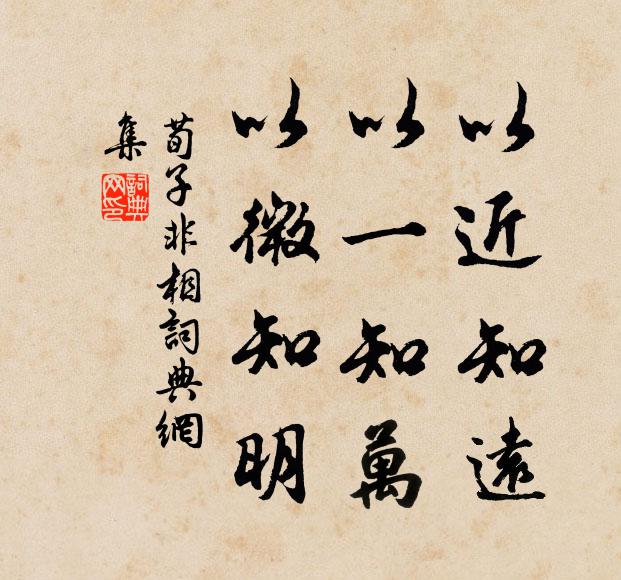 以近知遠
以一知萬
以微知明
荀子非相詞典網
集
詞典
网印